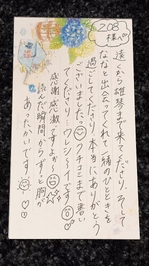 208
様へ
遠くから雄琴まで来てくださり、そして
ななと出会ってくれて一緒のひとときを
過ごしてくださり本当にありがとう
ございました。クチコミまで書い
てくださり、ウレシーイです
感謝感激ですよぉ〜
読んだ瞬間、からずっと胸が
あったかいです